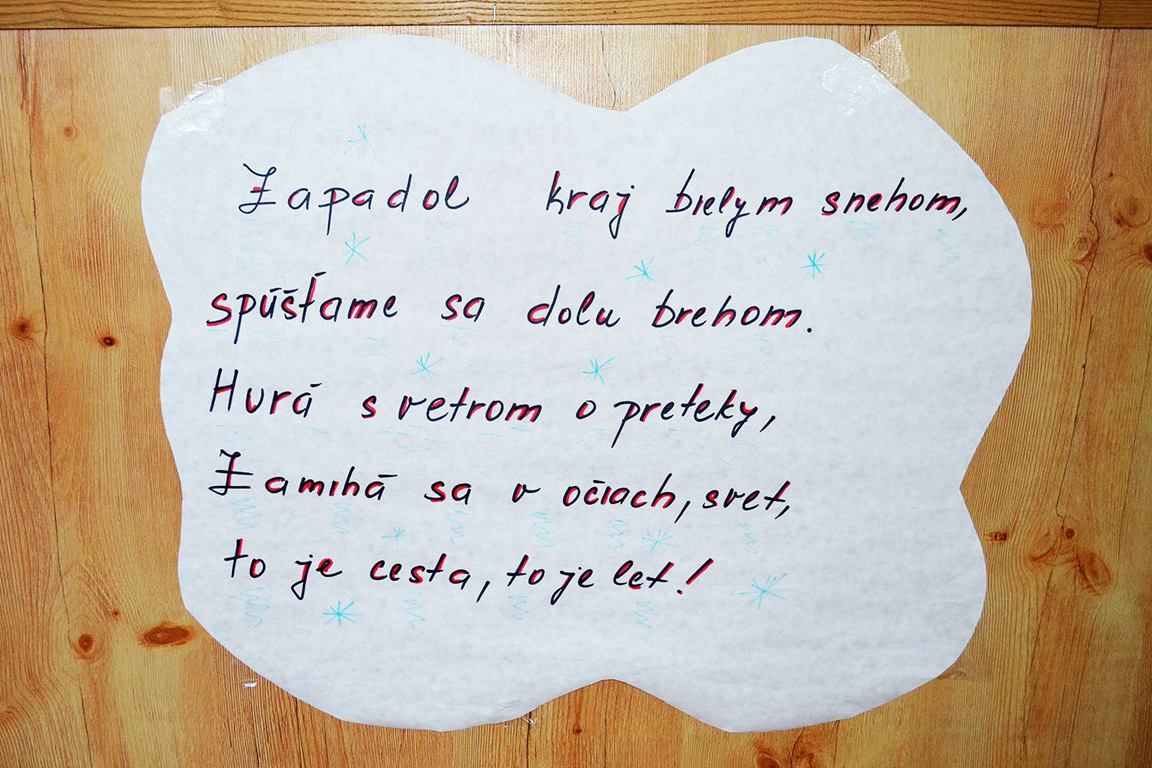 Zapadol kraj bielym snehom,
spúšťame sa dolu brehom.
Hurá s vetrom o preteky,
Zamihá sa v očiach, svet,
to je cesta, to je let!